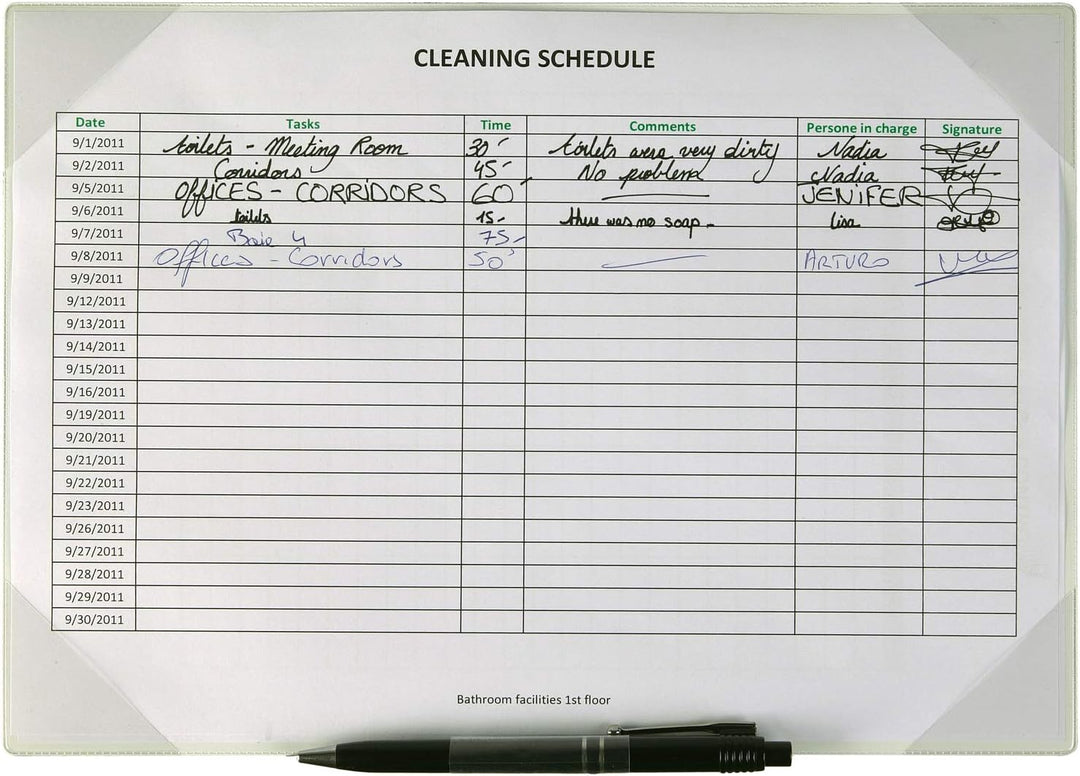 CLEANING SCHEDULE
Date Tasks Time Comments Persone in charge Signature
9/1/2011 toilets - Meeting Room 30' toilets were very dirty Nadia
9/2/2011 Corridors 45' No problem Nadia
9/5/2011 OFFICES - CORRIDORS 60' JENIFER
9/6/2011 toilets 15- there was no soap - lisa
9/7/2011 75-
9/8/2011 Offices - Corridors 50' ARTURO
9/9/2011
9/12/2011
9/13/2011
9/14/2011
9/15/2011
9/16/2011
9/19/2011
9/20/2011
9/21/2011
9/22/2011
9/23/2011
9/26/2011
9/27/2011
9/28/2011
9/29/2011
9/30/2011
Bathroom facilities 1st floor